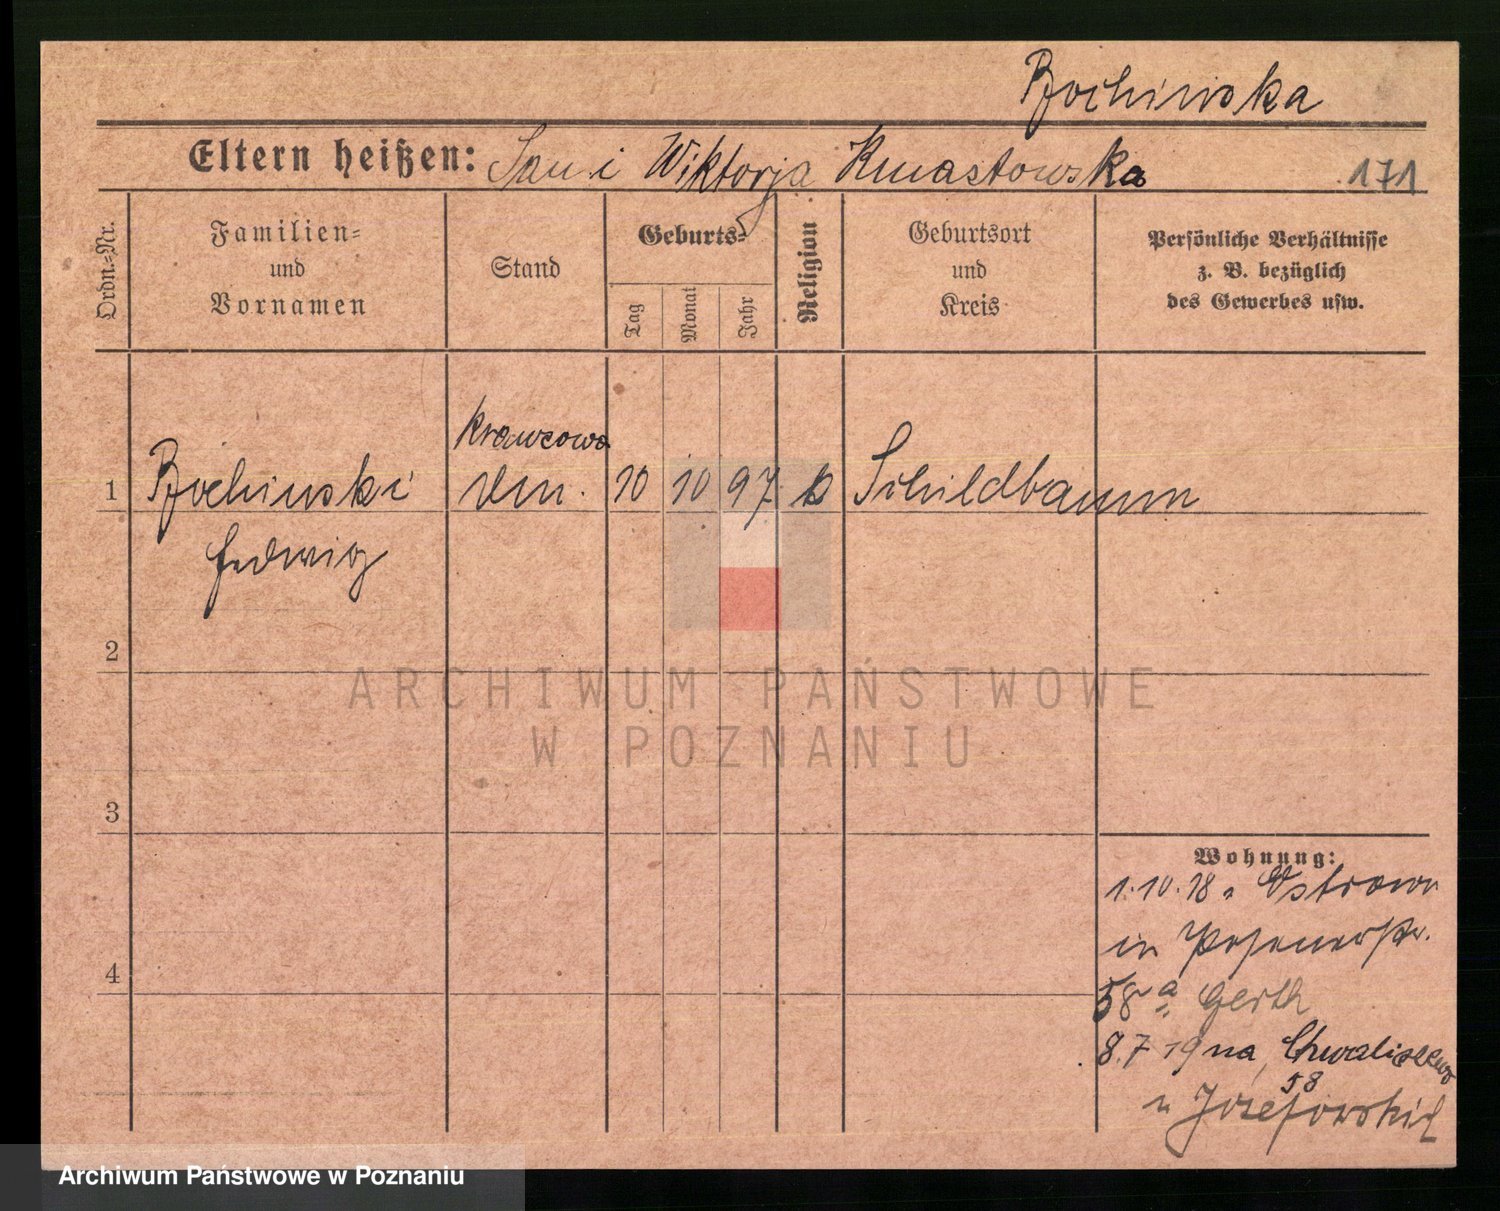 Bochinska
Eltern heißen: Jan i Wiktorja Kwiastowska 171
Ordn.=Nr.
Familien=
und
Vornamen
Stand
Geburts=
Tag
Monat
Jahr
Religion
Geburtsort
und
Kreis
Persönliche Verhältnisse
z. B. bezüglich
des Gewerbes usw.
krawcowa
1 Bochinski 10 10 97 k Schildbaum
Hedwig
2
ARCHIWUM PAŃSTWOWE
W POZNANIU
3
Wohnung:
1.10.18 Ostrowo
in Posenerstr.
4
58 a Gerth
8.7 19 na Chwaliszewo
58
u Józefowskich
Archiwum Państwowe w Poznaniu